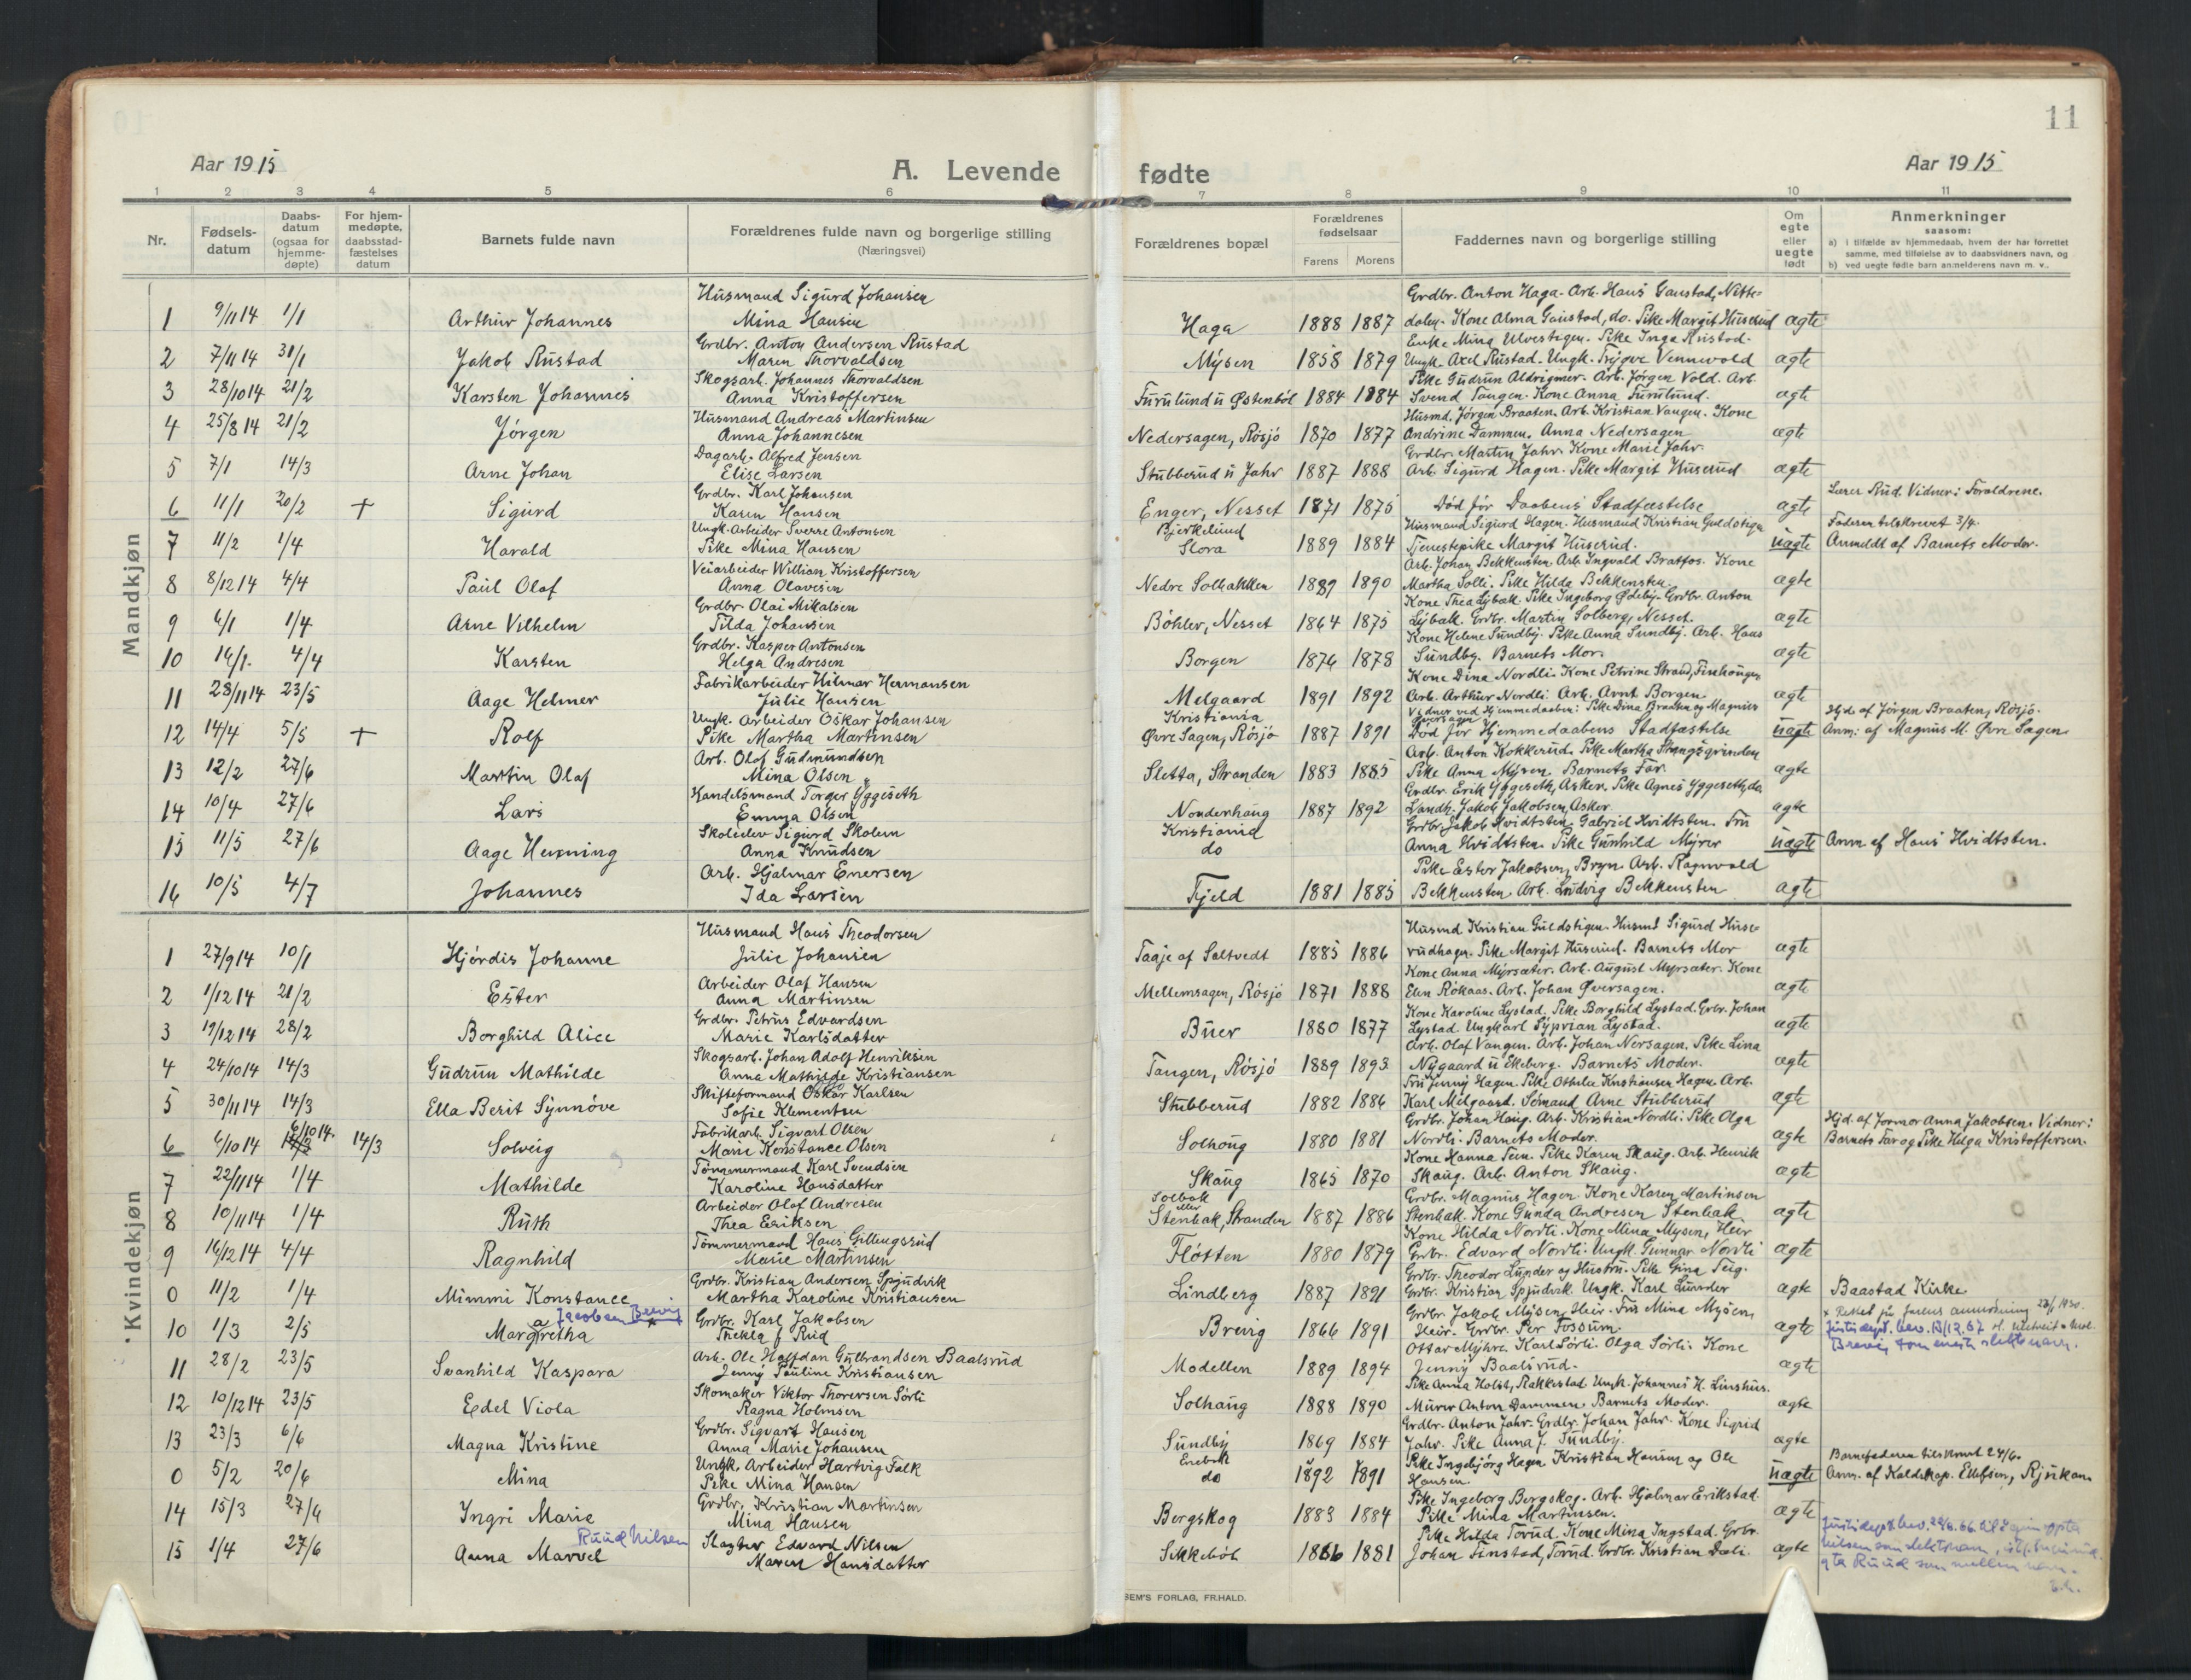 11
Aar 1915
A. Levende
fødte
Aar 1915
1 2 3 4 5 6 7 8 9 10 11
Nr.
Fødsels-datum
Daabs-datum (ogsaa for hjemme-døpte)
For hjem-medøpte, daabsstad-fæstelses datum
Barnets fulde navn
Forældrenes fulde navn og borgerlige stilling (Næringsvei)
Forældrenes bopæl
Forældrenes fødselsaar
Farens Morens
Faddernes navn og borgerlige stilling
Om egte eller uegte født
Anmerkninger
saasom:
a) i tilfælde av hjemmedaab, hvem der har forrettet samme, med tilføielse av to daabsvidners navn, og
b) ved uegte fødte barn anmelderens navn m. v..
Mandkjøn
1 9/11 14 1/1 Arthur Johannes Husmand Sigurd Johansen Mina Hansen Haga 1888 1887 Grdbr. Anton Haga. Arb. Hans Gaustad, Nitte=dalen. Kone Alma Gaustad, do. Pike Margit Huserud ægte
2 7/11 14 31/1 Jakob Rustad Grdbr. Anton Andersen Rustad Maren Thorvaldsen Mysen 1858 1879 Enke Mina Ulvestegen. Pike Inga Rustad. Ungk. Axel Rustad. Ungk. Trygve Vennevold ægte
3 28/10 14 21/2 Karsten Johannes Skogsarb. Johannes Thorvaldsen Anna Kristoffersen Furulund u Østenbøl 1884 1884 Pike Gudrun Aldrigmer. Arb. Jørgen Vold. Arb. Svend Tangen. Kone Anna Furulund. ægte
4 25/8 14 21/2 Jørgen Husmand Andreas Martinsen Anna Johannesen Nedersagen, Røsjø 1870 1877 Husmd. Jørgen Braaten. Arb. Kristian Vangen. Kone Andrine Dammen. Anna Nedersagen ægte
5 7/1 14/3 Arne Johan Dagarb. Alfred Jensen Elise Larsen Stubberud u Jahr 1887 1888 Grdbr. Martin Jahr. Kone Marie Jahr. Arb. Sigurd Hagen. Pike Margit Huserud ægte
6 11/1 20/2 + Sigurd Grdbr. Karl Johansen Karen Hansen Enger, Nesset 1871 1875 Død før Daabens Stadfæstelse ægte Lærer Rud. Vidner: Forældrene.
7 11/2 1/4 Harald Ungk. Arbeider Sverre Antonsen Pike Mina Hansen Bjerkelund Slora 1889 1884 Husmand Sigurd Hagen. Husmand Kristian Guldstigen Tjenestepike Margit Huserud. uægte Faderen tilskrevet 3/4. Anmeldt af Barnets Moder.
8 8/12 14 4/4 Paul Olaf Veiarbeider William Kristoffersen Anna Olavesen Nedre Solbakken 1889 1890 Arb. Johan Bekkensten. Arb. Ingvald Bratfos. Kone Martha Solli. Pike Hilda Bekkensten. ægte
9 6/1 1/4 Arne Vilhelm Grdbr. Olai Mikalsen Tilda Johansen Bøhler, Nesset 1864 1875 Kone Thea Lybæk. Pike Ingeborg Østeby. Grdbr. Anton Lybæk. Grdbr. Martin Solberg, Nesset. ægte
10 16/1. 4/4 Karsten Grdbr. Kasper Antonsen Helga Andresen Borgen 1876 1878 Kone Helene Sundby. Pike Anna Sundby. Arb. Hans Sundby. Barnets Mor. ægte
11 28/11 14 23/5 Aage Helmer Fabrikarbeider Hilmar Hermansen Julie Hansen Melgaard 1891 1892 Kone Dina Nordli. Kone Petrine Strand, Arb. Arthur Nordli. Arb. Arnt Borgen. ægte
12 14/4 5/5 + Rolf Ungk. Arbeider Oskar Johansen Pike Martha Martinsen Kristiania Øvre Sagen, Røsjø 1887 1891 Vidner ved Hjemmedaaben: Pike Dina Braaten og Magnus Øversagen Død før Hjemmedaabens Stadfæstelse uægte Hjd. af Jørgen Braaten, Røsjø. Anm: af Magnus M. Øvre Sagen.
13 12/2 27/6 Martin Olaf Arb. Olaf Gudmundsen Mina Olsen Sletta, Stranden 1883 1885 Arb. Anton Kokkerud. Pike Martha Pike Anna Myren. Barnets Far. ægte
14 10/4 27/6 Lars Handelsmand Torger Yggeseth Emma Olsen Nonderhaug 1887 1892 Grdbr. Erik Yggeseth, Asker. Pike Agnes Yggeseth, do Landh. Jakob Jakobsen, Asker. ægte
15 11/5 27/6 Aage Henning Skoleelev Sigurd Skolem Anna Knudsen Kristiania do Grdbr. Jakob Hvidtsten. Gabriel Hvidtsten. Fru Anna Hvidtsten. Pike Gunhild Myrer uægte Anm. af Hans Hvidtsten.
16 10/5 4/7 Johannes Arb. Hjalmar Enersen Ida Larsen Fjeld 1881 1885 Pike Ester Jakobsen, Bryn. Arb. Ragnvald Bekkensten. Arb. Ludvig Bekkensten ægte
Kvindekjøn
1 27/9 14 10/1 Hjørdis Johanne Husmand Hans Theodorsen Julie Johansen Taaje af Saltvedt 1885 1886 Husmd Kristian Guldstigen. Husmd Sigurd Huse=rudhagen. Pike Margit Huserud. Barnets Mor ægte
2 1/12 14 21/2 Ester Arbeider Olaf Hansen Anna Martinsen Mellemsagen, Røsjø 1871 1888 Kone Anna Myrsæter. Arb. August Myrsæter. Kone Elen Rökaas. Arb. Johan Øversagen. ægte
3 19/12 14 28/2 Borghild Alice Grdbr. Petrus Edvardsen Marie Karlsdatter Buer 1880 1877 Kone Karoline Lystad. Pike Borghild Lystad. Grbr. Johan Lystad. Ungkarl Syprian Lystad. ægte
4 24/10 14 14/3 Gudrun Mathilde Skogsarb. Johan Adolf Henriksen Anna Mathilde Kristiansen Tangen, Røsjø 1889 1893 Arb. Olaf Vangen. Arb. Johan Norsagen. Pike Lina Nygaard u Ekeberg. Barnets Moder. ægte
5 30/11 14 14/3 Ella Berit Synnøve Skifteformand Oskar Karlsen Sofie Klementsen Stubberud 1882 1886 Fru Jenny Hagen. Pike Othilie Kristiansen Hagen. Arb. Karl Melgaard. Sømand Arne Stubberud ægte
6 6/10 14 6/10 14. 14/3 14/3 Solveig Fabrikarb. Sigvart Olsen Marie Konstance Olsen Solhoug 1880 1881 Grdbr. Johan Haug. Arb. Kristian Nordli. Pike Olga Nordli. Barnets Moder. ægte Hjd. af Formor Anna Jakobsen. Vidner: Barnets Far og Pike Helga Kristoffersen.
7 22/11 14 1/4 Mathilde Tømmermand Karl Svendsen Karoline Hansdatter Skaug 1865 1870 Kone Hanna Pike Karen Skaug. Arb. Henrik Skaug. Arb. Anton Skaug. ægte
8 10/11 14 1/4 Ruth Arbeider Olaf Andresen Thea Eriksen Solbak eller Stenbak, Stranden 1887 1886 Grdbr. Magnus Hagen. Kone Karen Martinsen Stenbak. Kone Gunda Andresen Stenbak ægte
9 16/12 14 4/4 Ragnhild Tømmermand Hans Gillingsrud Marie Martinsen Fløtten 1880 1879 Kone Hilda Nordli. Kone Mina Mysen, Heir Grbr. Edvard Nordli. Ungk. Gunnar Nordli ægte
0 11/2 1/4 Mimmi Konstance Grdbr. Kristian Andersen Spjudvik Martha Karoline Kristiansen Lindberg 1887 1891 Grdbr. Theodor Lunder og Hustru. Pike Gina Teig. Grdbr. Kristian Spjudvik. Ungk. Karl Lunder ægte Baastad Kirke
10 1/3 2/5 Margaretha Jacobsen Brevig Grdbr. Karl Jakobsen Thekla f Rud Brevig 1866 1891 Grdbr. Jakob Mysen, Heir. Fru Mina Mysen, Heir. Grdbr. Per Fossum. ægte x Rettet på farens anmodning Justisdept. bev. 13/12.67 Brevig som eneste slektsnavn.
11 28/2 23/5 Svanhild Kaspara Arb. Ole Halfdan Gulbrandsen Baalsrud Jenny Pauline Kristiansen Modellen 1889 1894 Ottar Myhre. Karl Sørli. Olga Sørli. Kone Jenny Baalsrud. ægte
12 10/12 14 23/5 Eidel Viola Skomaker Viktor Thoresen Sørli Ragna Holmsen Solhaug 1888 1890 Pike Anna Holst, Rakkestad Ungk. Johannes H. Linshus. Murer Anton Dammen. Barnets Moder. ægte
13 23/3 6/6 Magna Kristine Grdbr. Sigvart Hansen Anna Marie Johansen Sundby 1869 1884 Grdbr. Anton Jahr. Grdbr. Johan Jahr. Kone Sigrid Jahr. Pike Anna J. Sundby. ægte
0 5/2 20/6 Mina Ungk. Arbeider Hartvig Falk Pike Mina Hansen Enebak do 1892 1891 Pike Ingebjørg Hagen Kristian Hansen og Ole Hansen. uægte Barnefaderen tilskrevet 24/6. Anm. af Kaldskap. Ellefsen, Rjukan.
14 15/3 27/6 Ingri Marie Grdbr. Kristian Martinsen Mina Hansen Bergskog 1883 1884 Pike Ingeborg Bergskog. Arb. Hjalmar Erikstad. Pike Mirla Martinsen. ægte
15 1/4 27/6 Anna Marvel Ruud Nilsen Slagter Edvard Nilsen Maren Hansdatter Sikkebøl 1886 1881 Pike Hilda Torud. Kone Mina Ingstad. Grbr. Johan Finstad, Torud. Grdbr. Kristian Dæli. ægte
SEM'S FORLAG, FR.HALD.